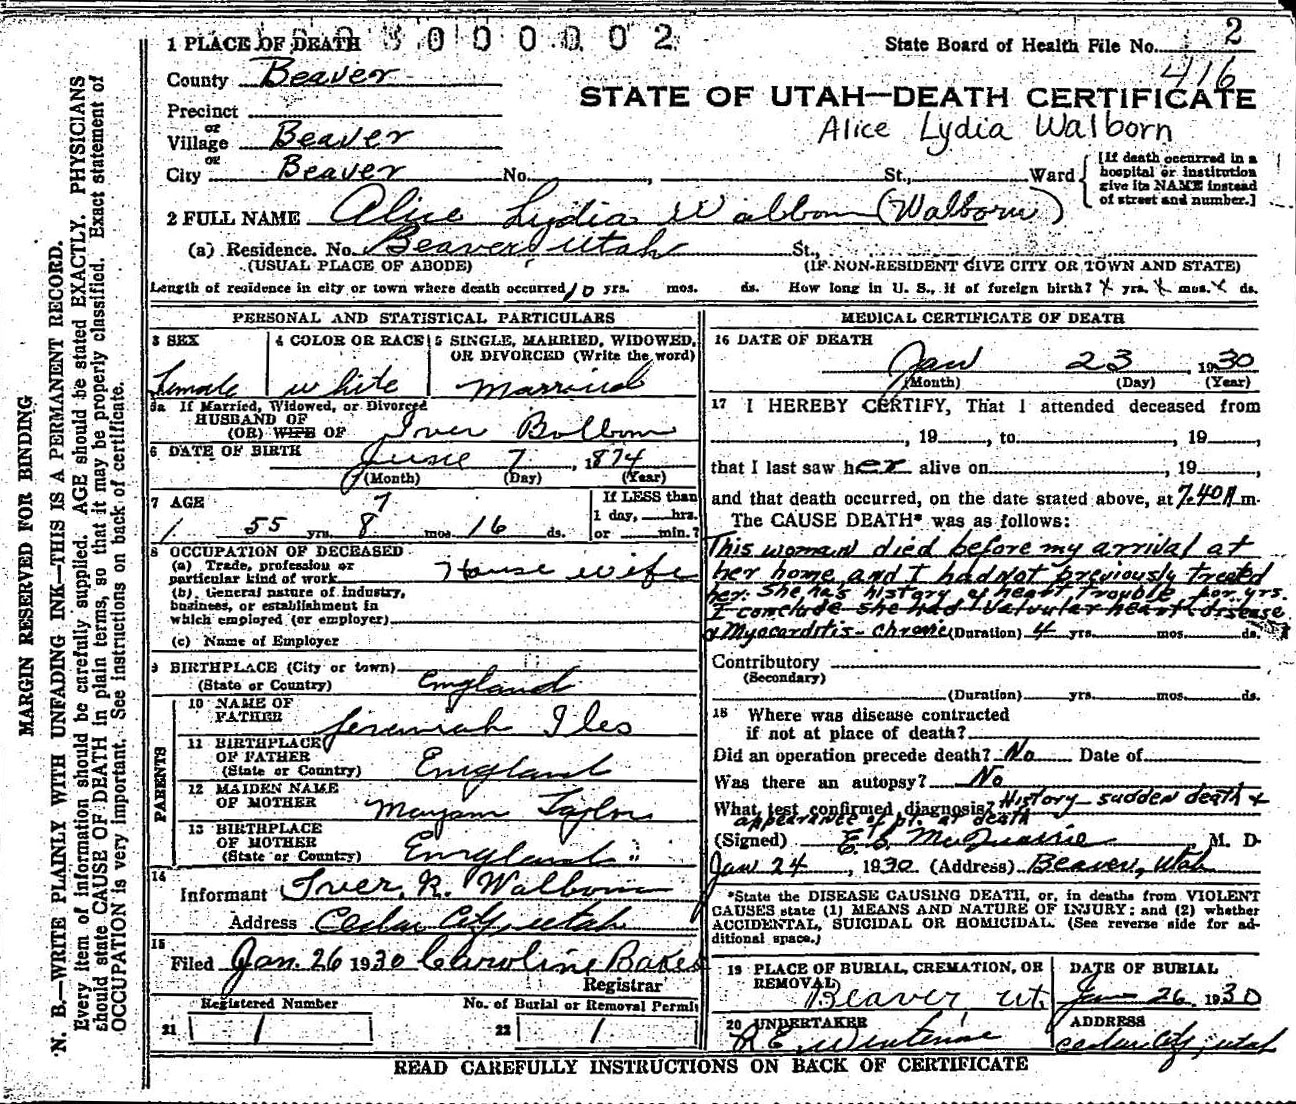 MARGIN RESERVED FOR BINDING
N. B.—WRITE PLAINLY WITH UNFADING INK—THIS IS A PERMANENT RECORD.
Every item of information should be carefully supplied. AGE should be stated EXACTLY. PHYSICIANS
should state CAUSE OF DEATH in plain terms, so that it may be properly classified. Exact statement of
OCCUPATION is very important. See instructions on back of certificate.
1 PLACE OF DEATH 0 0 0 0 0 2
State Board of Health File No. 2
416
County Beaver
STATE OF UTAH—DEATH CERTIFICATE
Precinct
or
Alice Lydia Walborn
Village Beaver
or
City Beaver No. , St., Ward
[If death occurred in a
hospital or institution
give its NAME instead
of street and number.]
2 FULL NAME Alice Lydia Walbom (Walborn)
(a) Residence. No. Beaver Utah St.,
(USUAL PLACE OF ABODE) (IF NON-RESIDENT GIVE CITY OR TOWN AND STATE)
Length of residence in city or town where death occurred 10 yrs. mos. ds. How long in U. S., if of foreign birth? x yrs. x mos. x ds.
PERSONAL AND STATISTICAL PARTICULARS
3 SEX 4 COLOR OR RACE 5 SINGLE, MARRIED, WIDOWED,
OR DIVORCED (Write the word)
Female white Married
5a If Married, Widowed, or Divorced
HUSBAND OF
(OR) WIFE OF Iver Bolbom
6 DATE OF BIRTH June 7, 1874
(Month) (Day) (Year)
7 AGE 7 If LESS than
1 day, hrs.
55 yrs. 8 mos. 16 ds. or min.?
8 OCCUPATION OF DECEASED
(a) Trade, profession or
particular kind of work House wife
(b) General nature of industry,
business, or establishment in
which employed (or employer)
(c) Name of Employer
9 BIRTHPLACE (City or town)
(State or Country) England
PARENTS
10 NAME OF
FATHER Jeremiah Iles
11 BIRTHPLACE
OF FATHER
(State or Country) England
12 MAIDEN NAME
OF MOTHER Maryann Taylor
13 BIRTHPLACE
OF MOTHER
(State or Country) England
14
Informant Iver R. Walbom
Address Cedar City, Utah
15
Filed Jan. 26 1930 Caroline Baker
Registrar
Registered Number No. of Burial or Removal Permit
21 22
MEDICAL CERTIFICATE OF DEATH
16 DATE OF DEATH
Jan 23 1930
(Month) (Day) (Year)
17 I HEREBY CERTIFY, That I attended deceased from
, 19 , to 19 ,
that I last saw her alive on , 19 ,
and that death occurred, on the date stated above, at 7.40 A m.
The CAUSE DEATH* was as follows:
This woman died before my arrival at
her home and I had not previously treated
her. She has history of heart trouble for yrs.
I conclude she had Valvular heart disease
& Myocarditis - chronic (Duration) 4 yrs. mos. ds.
Contributory
(Secondary)
(Duration) yrs. mos. ds.
18 Where was disease contracted
if not at place of death?
Did an operation precede death? No Date of
Was there an autopsy? No
What test confirmed diagnosis? History - sudden death &
appearance of pt. at death
(Signed) E. L. McQuarrie M. D.
Jan 24, 1930 (Address) Beaver, Utah
*State the DISEASE CAUSING DEATH, or, in deaths from VIOLENT
CAUSES state (1) MEANS AND NATURE OF INJURY: and (2) whether
ACCIDENTAL, SUICIDAL OR HOMICIDAL. (See reverse side for ad-
ditional space.)
19 PLACE OF BURIAL, CREMATION, OR DATE OF BURIAL
REMOVAL
Beaver Ut. Jan 26, 1930
20 UNDERTAKER ADDRESS
Cedar City, Utah
READ CAREFULLY INSTRUCTIONS ON BACK OF CERTIFICATE